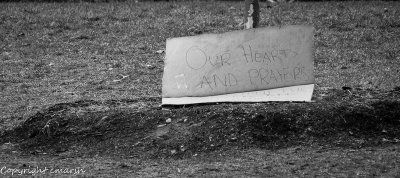 OUR HEARTS
AND PRAYERS
Copyright cmarin